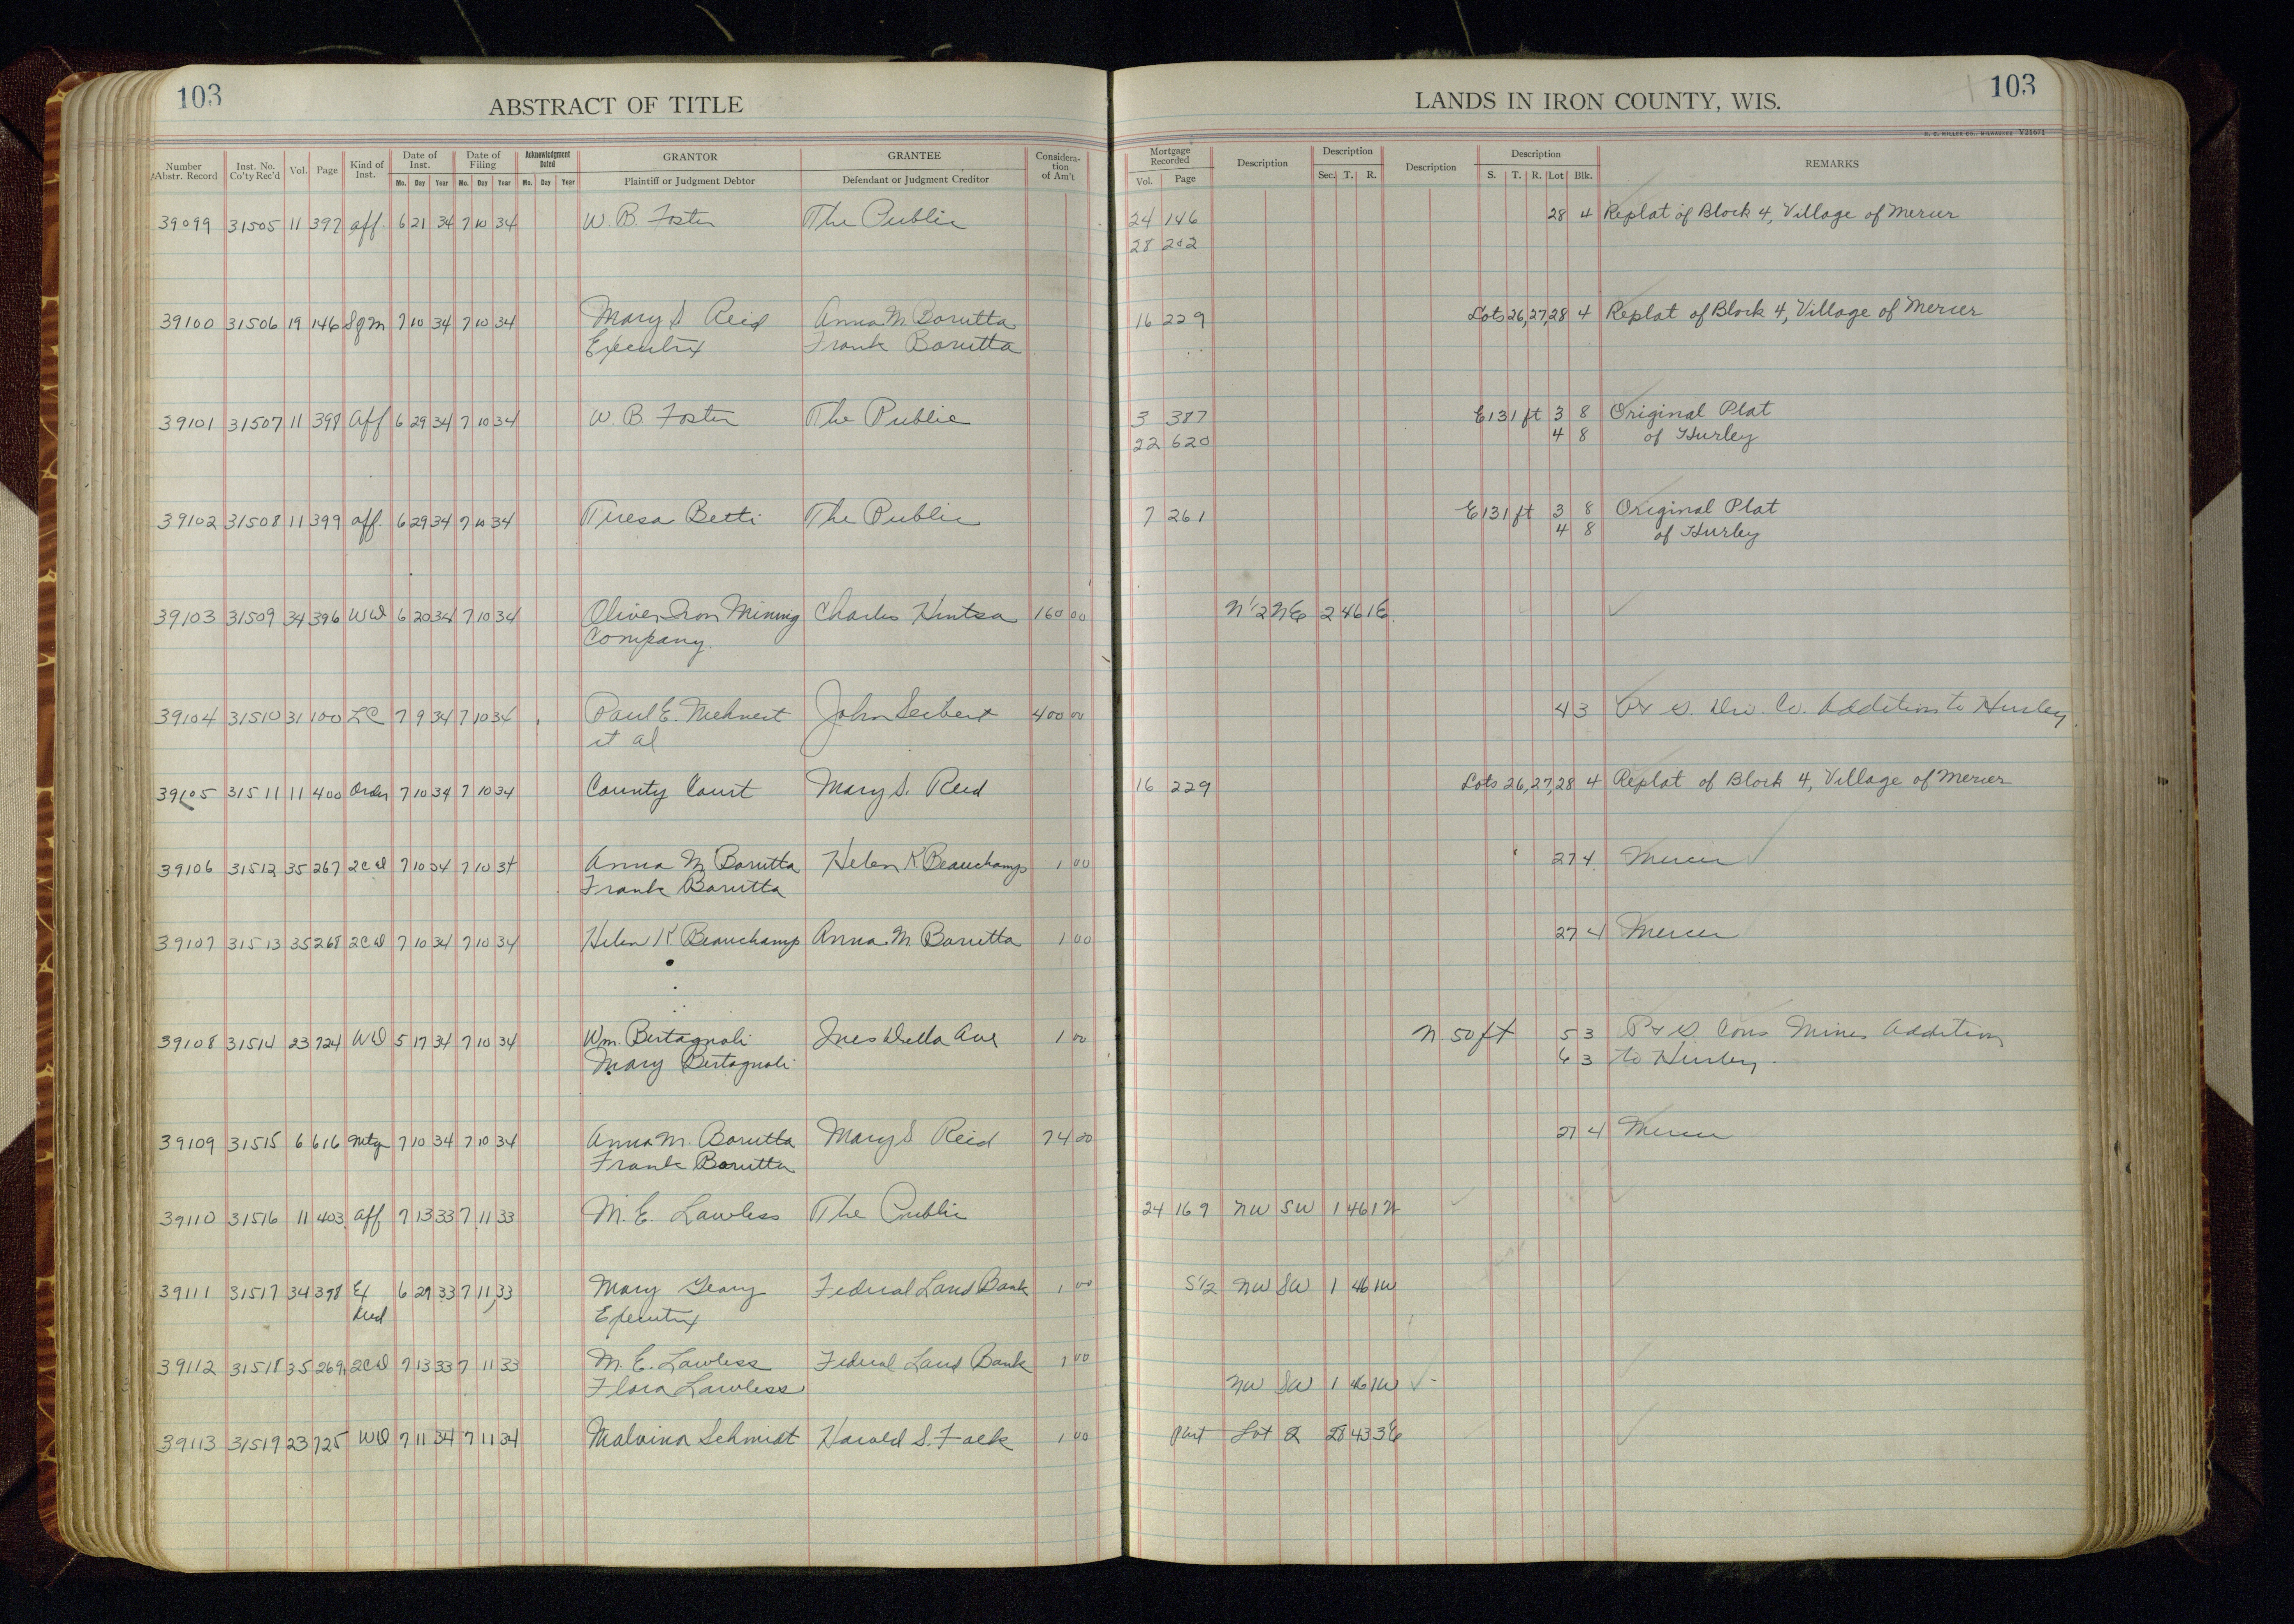 103
ABSTRACT OF TITLE
LANDS IN IRON COUNTY, WIS.
103
H. C. MILLER CO., MILWAUKEE V21671
Number Abstr. Record Inst. No. Co'ty Rec'd Vol. Page Kind of Inst. Date of Inst. Mo. Day Year Date of Filing Mo. Day Year Acknowledgment Dated Mo. Day Year GRANTOR Plaintiff or Judgment Debtor GRANTEE Defendant or Judgment Creditor Considera-tion of Am't Mortgage Recorded Vol. Page Description Description Sec. T. R. Description Description S. T. R. Lot Blk. REMARKS
39099 31505 11 397 aff. 6 21 34 7 10 34 W. B. Foster The Public 24 146 28 4 Replat of Block 4, Village of Mercer
28 202
39100 31506 19 146 Sqm 7 10 34 7 10 34 Mary S Reid Anna M Borutta 16 229 Lots 26,27,28 4 Replat of Block 4, Village of Mercer
Executrix Frank Borutta
39101 31507 11 398 Aff 6 29 34 7 10 34 W. B. Foster The Public 3 387 E 131 ft 3 8 Original Plat
22 620 4 8 of Hurley
39102 31508 11 399 aff. 6 29 34 7 10 34 Teresa Betti The Public 7 261 E 131 ft 3 8 Original Plat
4 8 of Hurley
39103 31509 34 396 WD 6 20 34 7 10 34 Oliver Iron Mining Charles Hintsa 160 00 N 1/2 NE 2 46 1E
Company
39104 31510 31 100 LC 7 9 34 7 10 34 Paul E. Mehnert John Seibert 400 00 4 3 Addition to Hurley
et al
39105 31511 11 400 Order 7 10 34 7 10 34 County Court Mary S. Reid 16 229 Lots 26,27,28 4 Replat of Block 4, Village of Mercer
39106 31512 35 267 2CD 7 10 34 7 10 34 Anna M Borutta Helen K Beauchamp 1 00 27 4 Mercer
Frank Borutta
39107 31513 35 268 2CD 7 10 34 7 10 34 Helen K Beauchamp Anna M Borutta 1 00 27 4 Mercer
39108 31514 23 724 WD 5 17 34 7 10 34 Wm. Bertagnoli Ines Della Ave 1 00 N 50 ft 5 3 P & S. Cons Mines Addition
Mary Bertagnoli 6 3 to Hurley.
39109 31515 6 616 Mtg 7 10 34 7 10 34 Anna M. Borutta Mary S Reid 74 20 27 4 Mercer
Frank Borutta
39110 31516 11 403 aff 7 13 33 7 11 33 M. E. Lawless The Public 24 169 NW SW 1 46 1W
39111 31517 34 398 Ex 6 29 33 7 11 33 Mary Geary Federal Land Bank 1 00 S 1/2 NW SW 1 46 1W
Deed Executrix
39112 31518 35 269 2CD 7 13 33 7 11 33 M. E. Lawless Federal Land Bank 1 00
Flora Lawless NW SW 1 46 1W
39113 31519 23 725 WD 7 11 34 7 11 34 Malvina Schmidt Harold S. Falk 1 00 Part Lot 2 28 43 3E